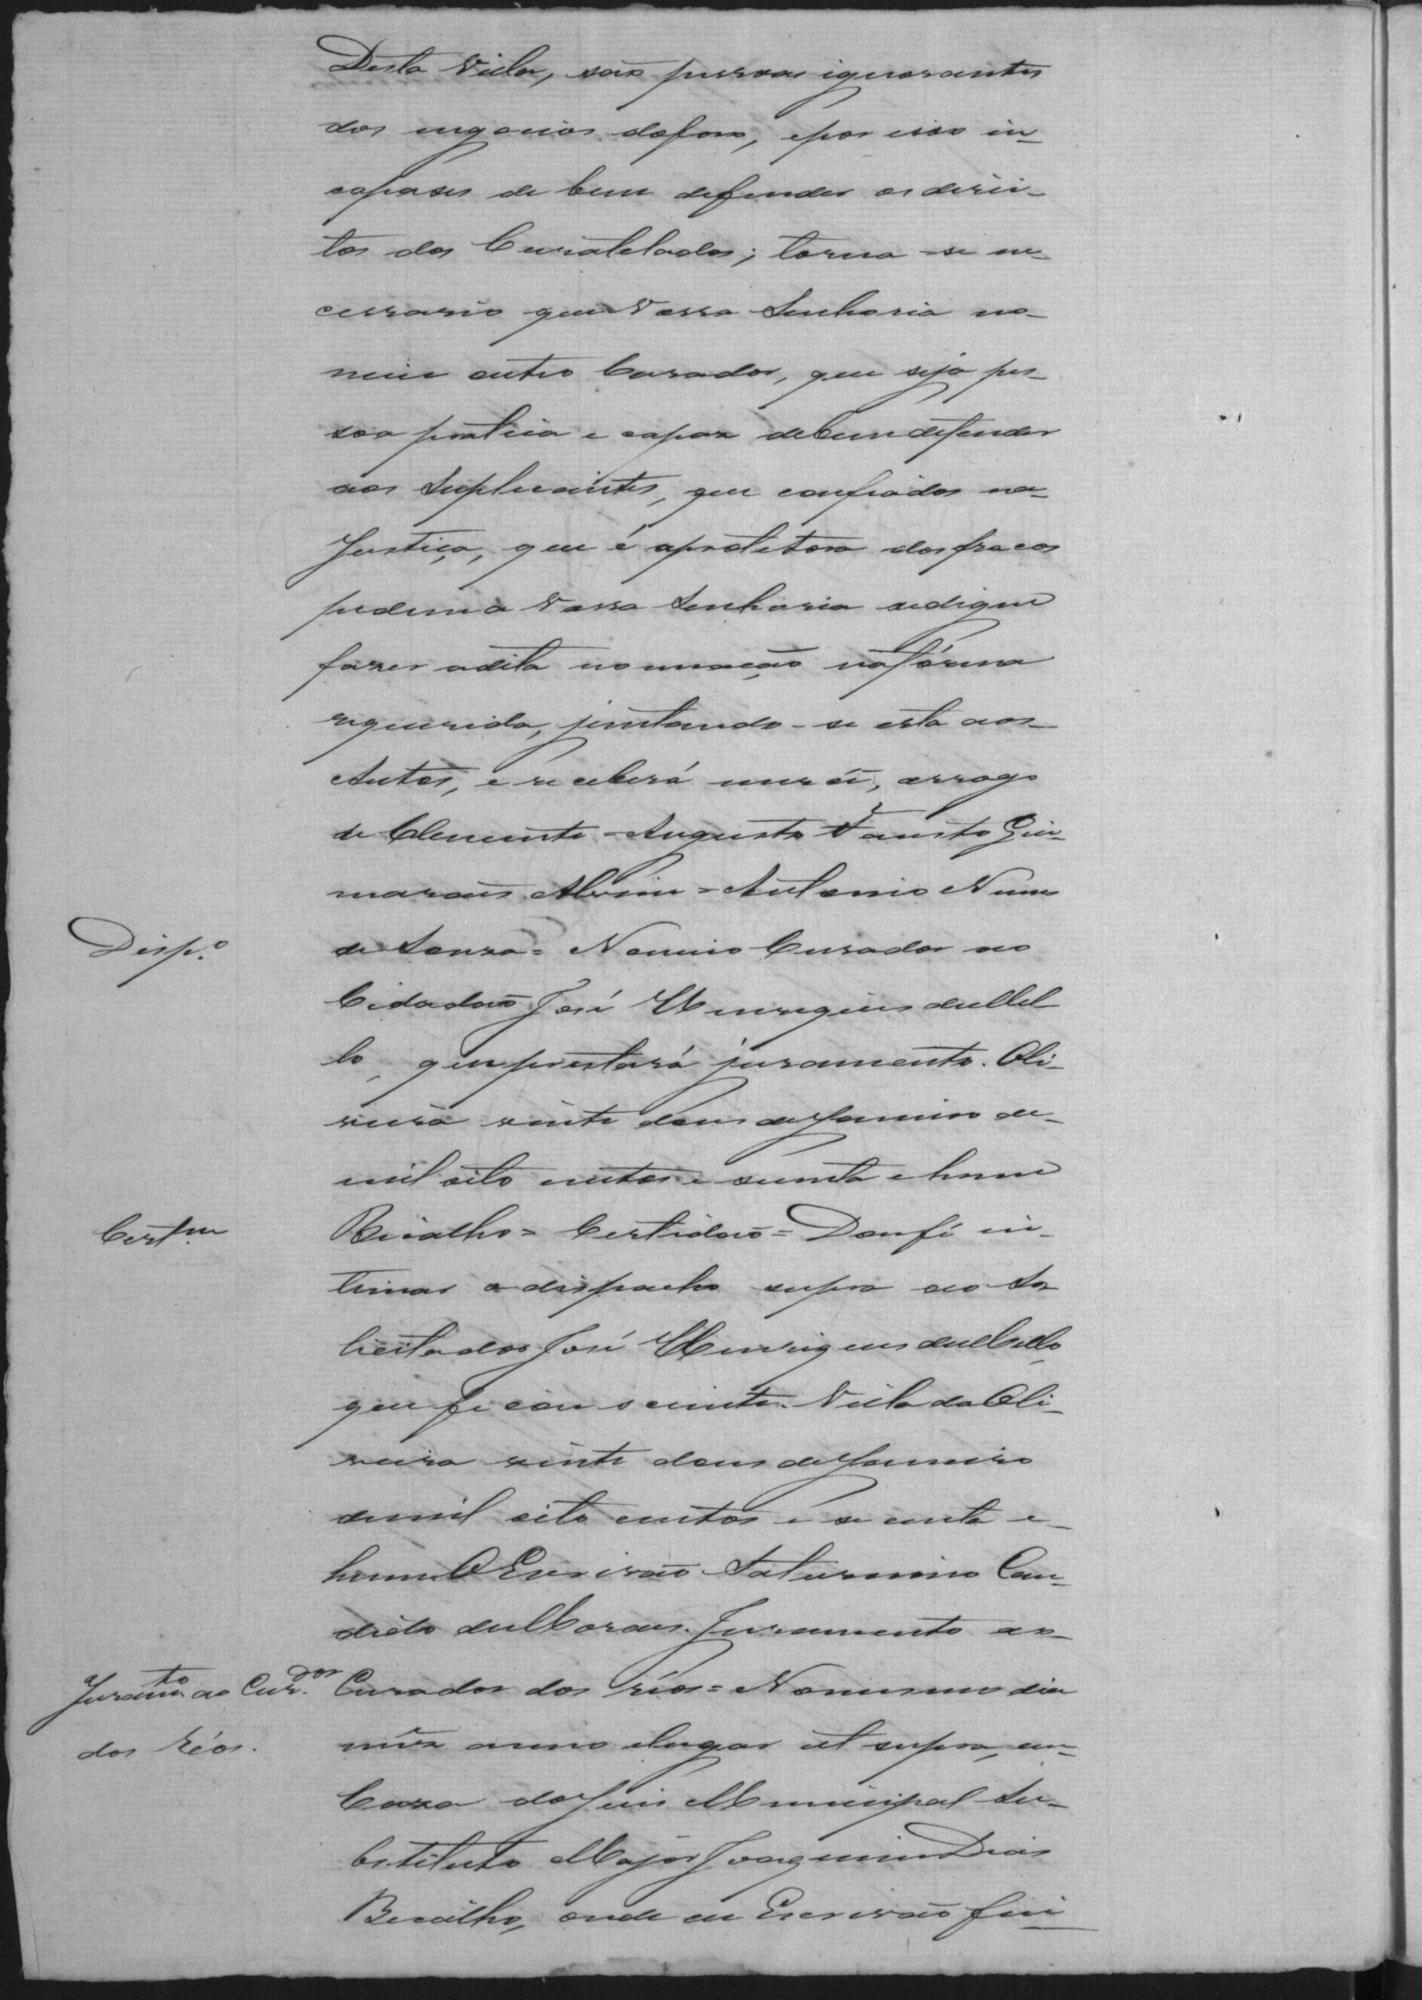 Desta Villa, são pessoas ignorantes
dos negocios do foro, e por isso in-
capases de bem defender os direi-
tos dos Curatelados; torna-se ne-
cessario que Vossa Senhoria no-
meie outro Curador, que seja pes-
soa pratica e capaz de bem defender
aos Suplicantes, que confiados na
Justiça, que é a protetora dos fracos
pedem a Vossa Senhoria se digne
fazer a dita nomeação na fórma
requerida, juntando-se esta aos
Autos, e receberá mercê, arrogo
de Clemente = Augusto Fausto Gui-
maraes Alvim = Antonio Nunes
Disp.o de Souza = Nomeio Curador ao
Cidadão José Henriques de Mel
lo, que prestará juramento. Oli-
veira vinte dous de Janeiro de
mil oito centos e secenta e hum
Cert.m Bicalho = Certidão = Dou fé in-
timar o despacho supra ao So
licitador José Henriques de Mello,
que ficou sciente. Villa da Oli-
veira vinte dous de Janeiro
de mil oito centos e secenta e
hum O Escrivão Saturnino Can-
dido de Moraes. Juramento ao
Juram.to ao Cur.dor Curador dos réos = No mesmo dia
dos réos. mês anno e lugar ut supra, em
Caza do Juis Municipal Su-
bstituto Major Joaquim Dias
Bicalho, onde eu Escrivão fui